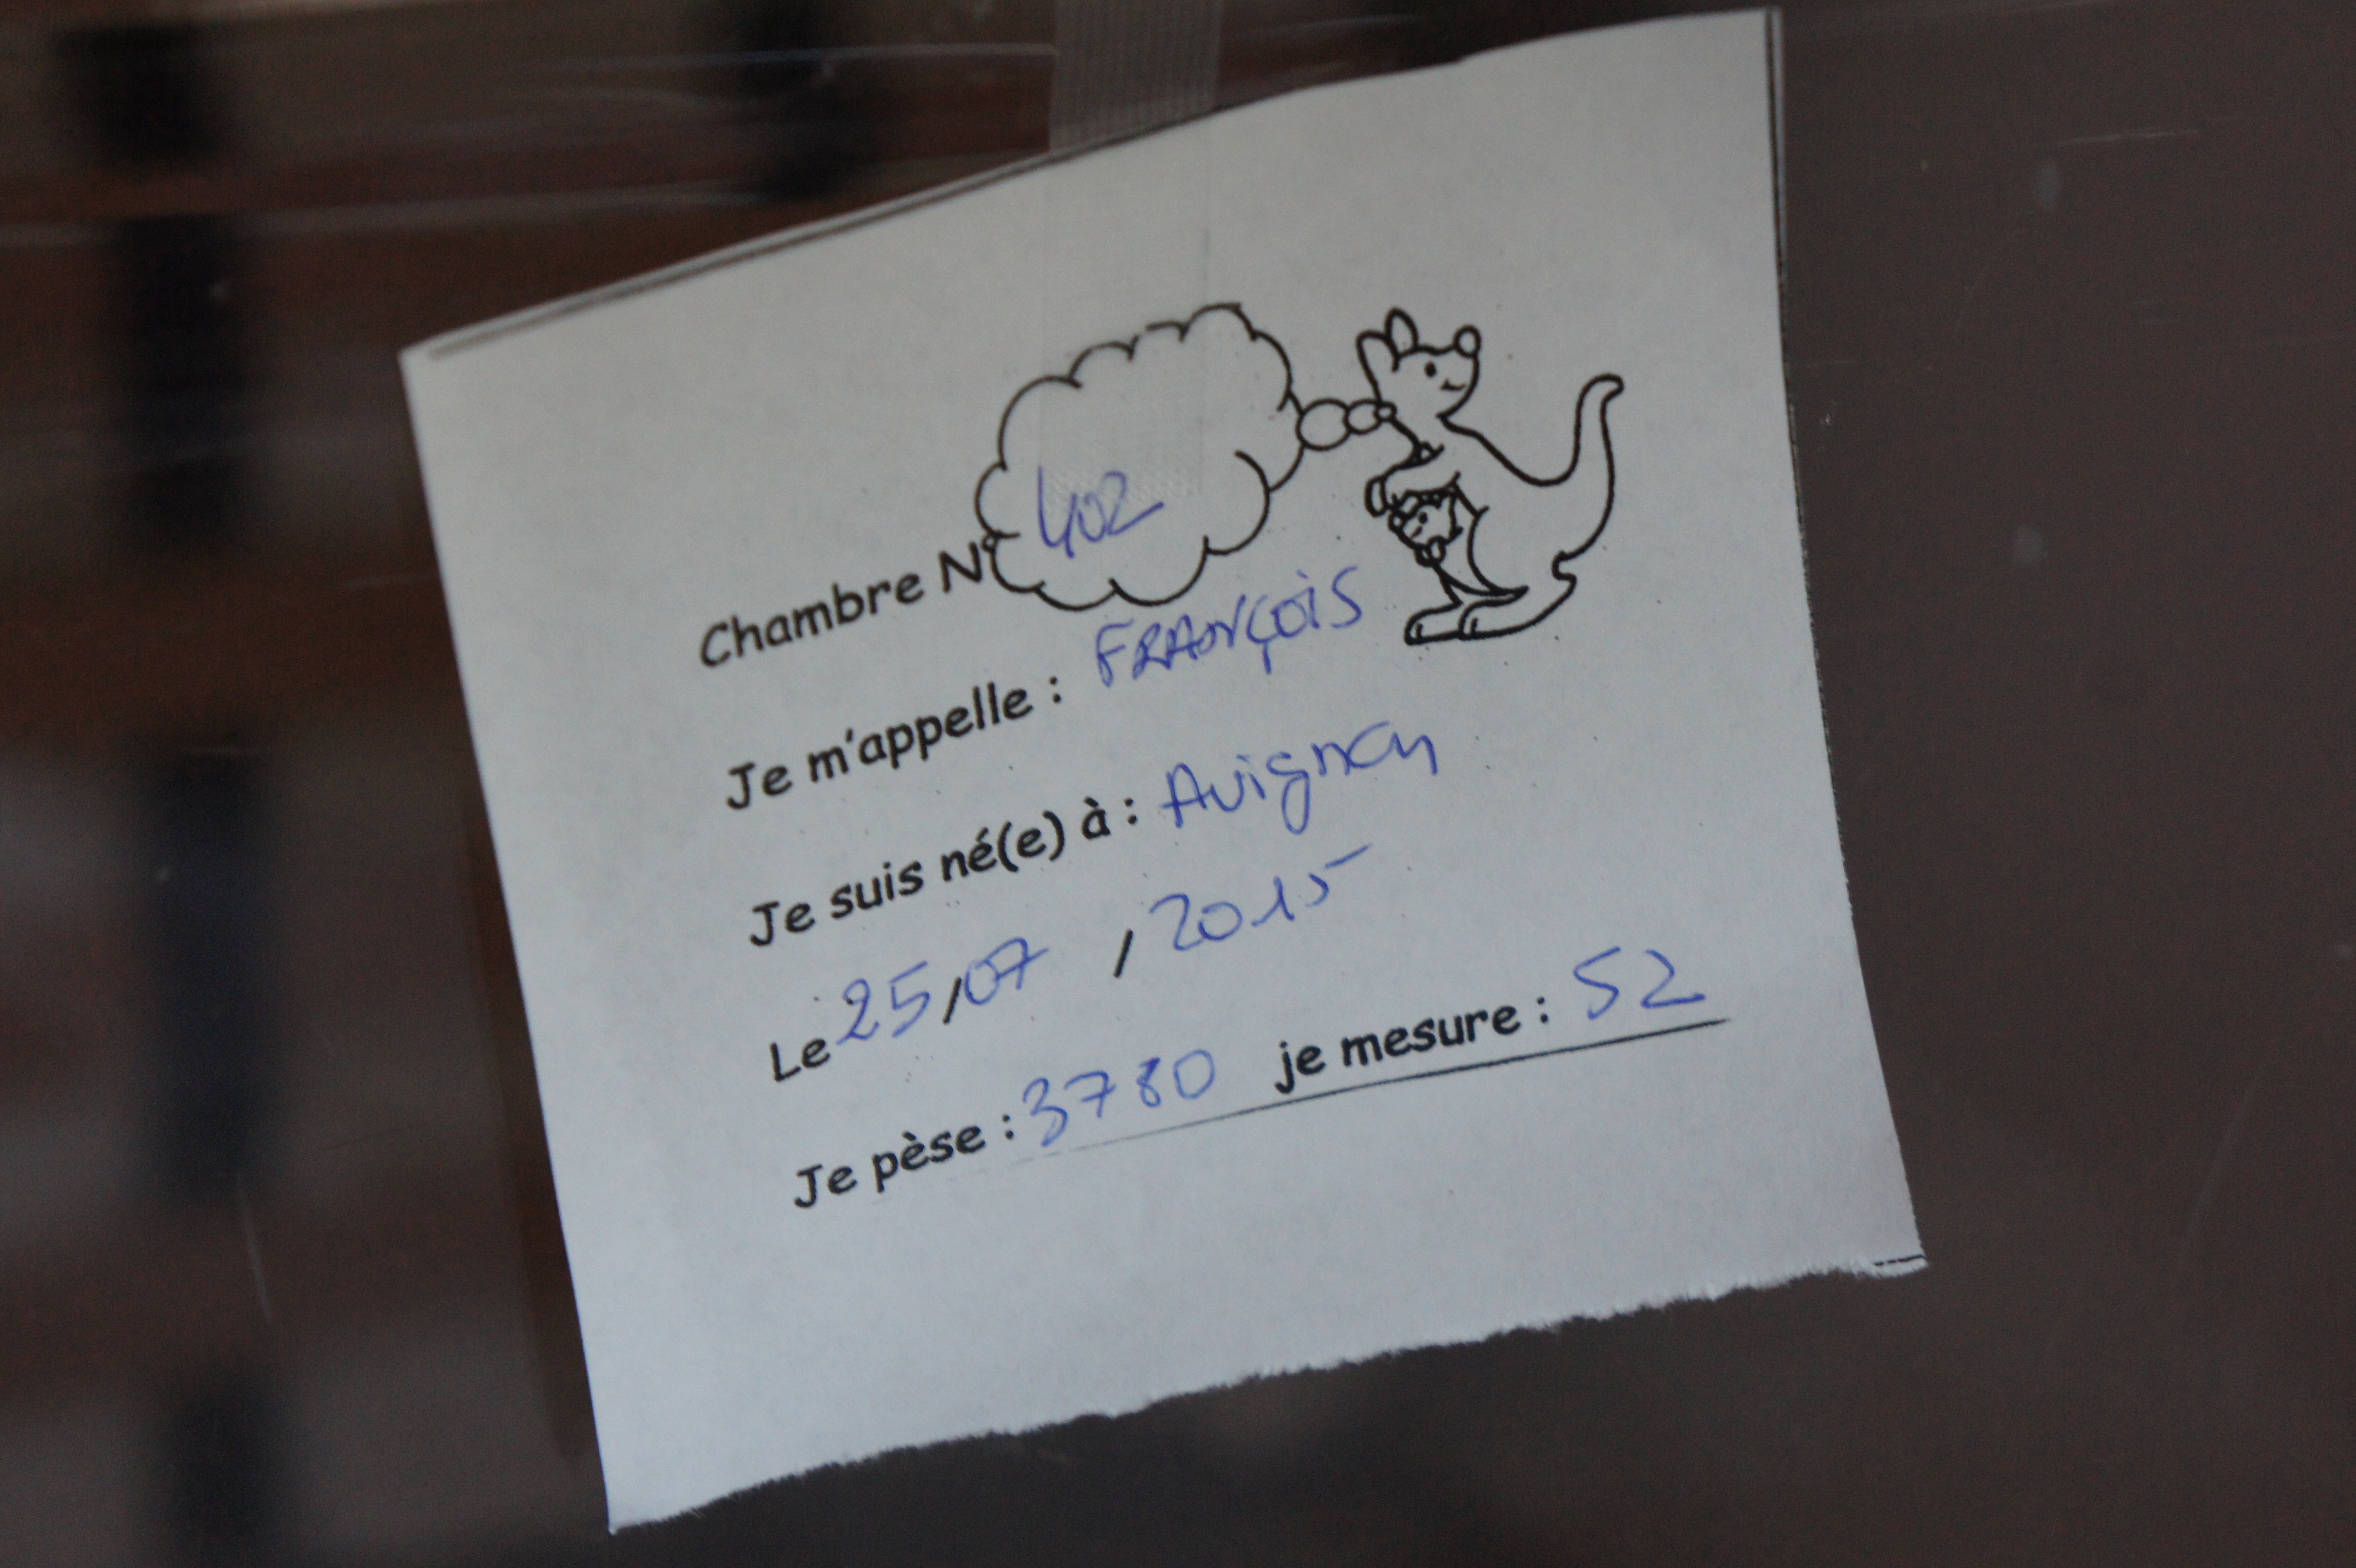 Chambre N° 402
Je m'appelle : FRANÇOIS
Je suis né(e) à : Avignon
Le 25/07 / 2015
Je pèse : 3780 je mesure : 52